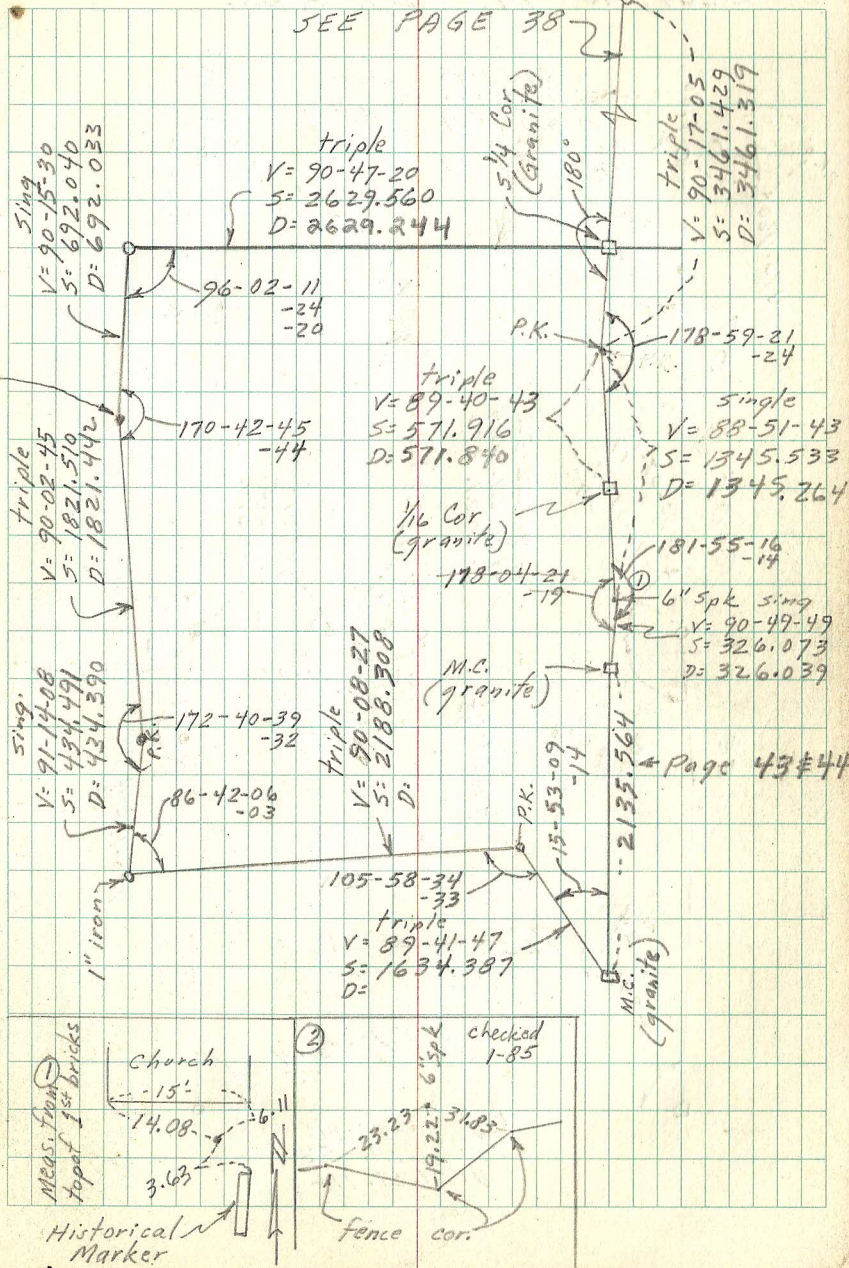 SEE PAGE 38
sing
V= 90-15-30
S= 692.040
D= 692.033
triple
V= 90-47-20
S= 2629.560
D= 2629.244
S 1/4 Cor
(Granite)
180°
triple
V= 90-17-05
S= 3461.429
D= 3461.319
96-02-11
-24
-20
P.K.
178-59-21
-24
triple
V= 89-40-43
S= 571.916
D= 571.840
single
V= 88-51-43
S= 1345.533
D= 1345.264
170-42-45
-44
triple
V= 90-02-45
S= 1821.510
D= 1821.442
1/16 Cor
(granite)
181-55-16
-14
178-04-21
-19
①
6" Spk sing
V= 90-49-49
S= 326.073
D= 326.039
M.C.
(granite)
sing.
V= 91-14-08
S= 434.491
D= 434.390
172-40-39
-32
P.K.
triple
V= 90-08-27
S= 2188.308
D=
2135.564
Page 43 & 44
86-42-06
-03
P.K.
15-53-09
-14
105-58-34
-33
triple
V= 89-41-47
S= 1634.387
D=
1" iron
M.C.
(granite)
Meas. from ①
top of 1st bricks
Church
15'
14.08
6.11
3.63
Historical
Marker
②
checked
1-85
6" Spk
23.23
19.22
31.83
fence cor.